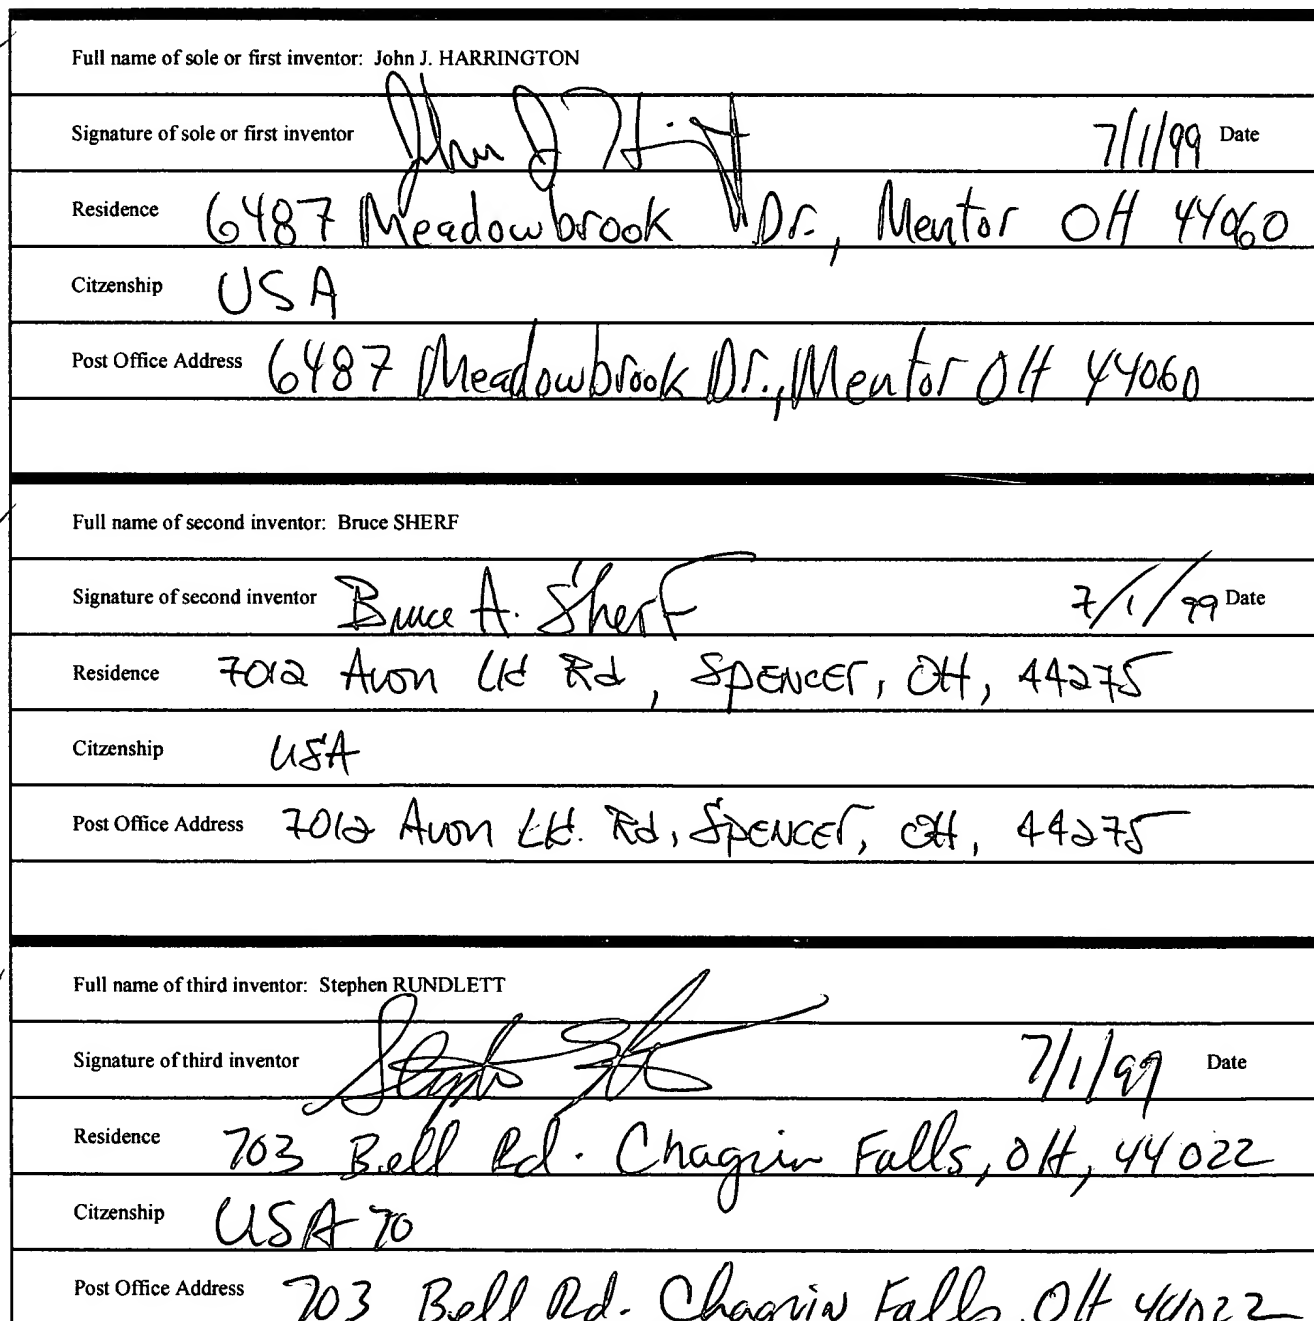 Full name of sole or first inventor: John J. HARRINGTON
Signature of sole or first inventor John J 7/1/99 Date
Residence 6487 Meadowbrook Dr., Mentor OH 44060
Citzenship USA
Post Office Address 6487 Meadowbrook Dr., Mentor OH 44060
Full name of second inventor: Bruce SHERF
Signature of second inventor Bruce A. Sherf 7/1/99 Date
Residence 7012 Avon Ld Rd, SPENCEr, OH, 44275
Citzenship USA
Post Office Address 7012 Avon Ld. Rd, SPENCEr, OH, 44275
Full name of third inventor: Stephen RUNDLETT
Signature of third inventor 7/1/99 Date
Residence 703 Bell Rd. Chagrin Falls, OH, 44022
Citzenship USA 70
Post Office Address 703 Bell Rd. Chagrin Falls, OH 44022